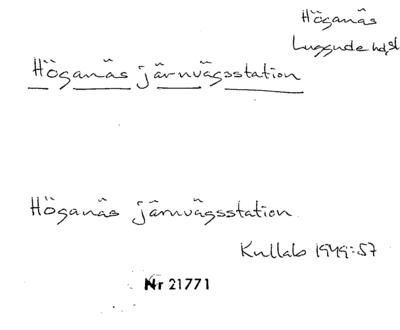 Höganäs
Luggude hd, sk
Höganäs järnvägsstation
Höganäs järnvägsstation
Kullab 1949:57
Nr 21771